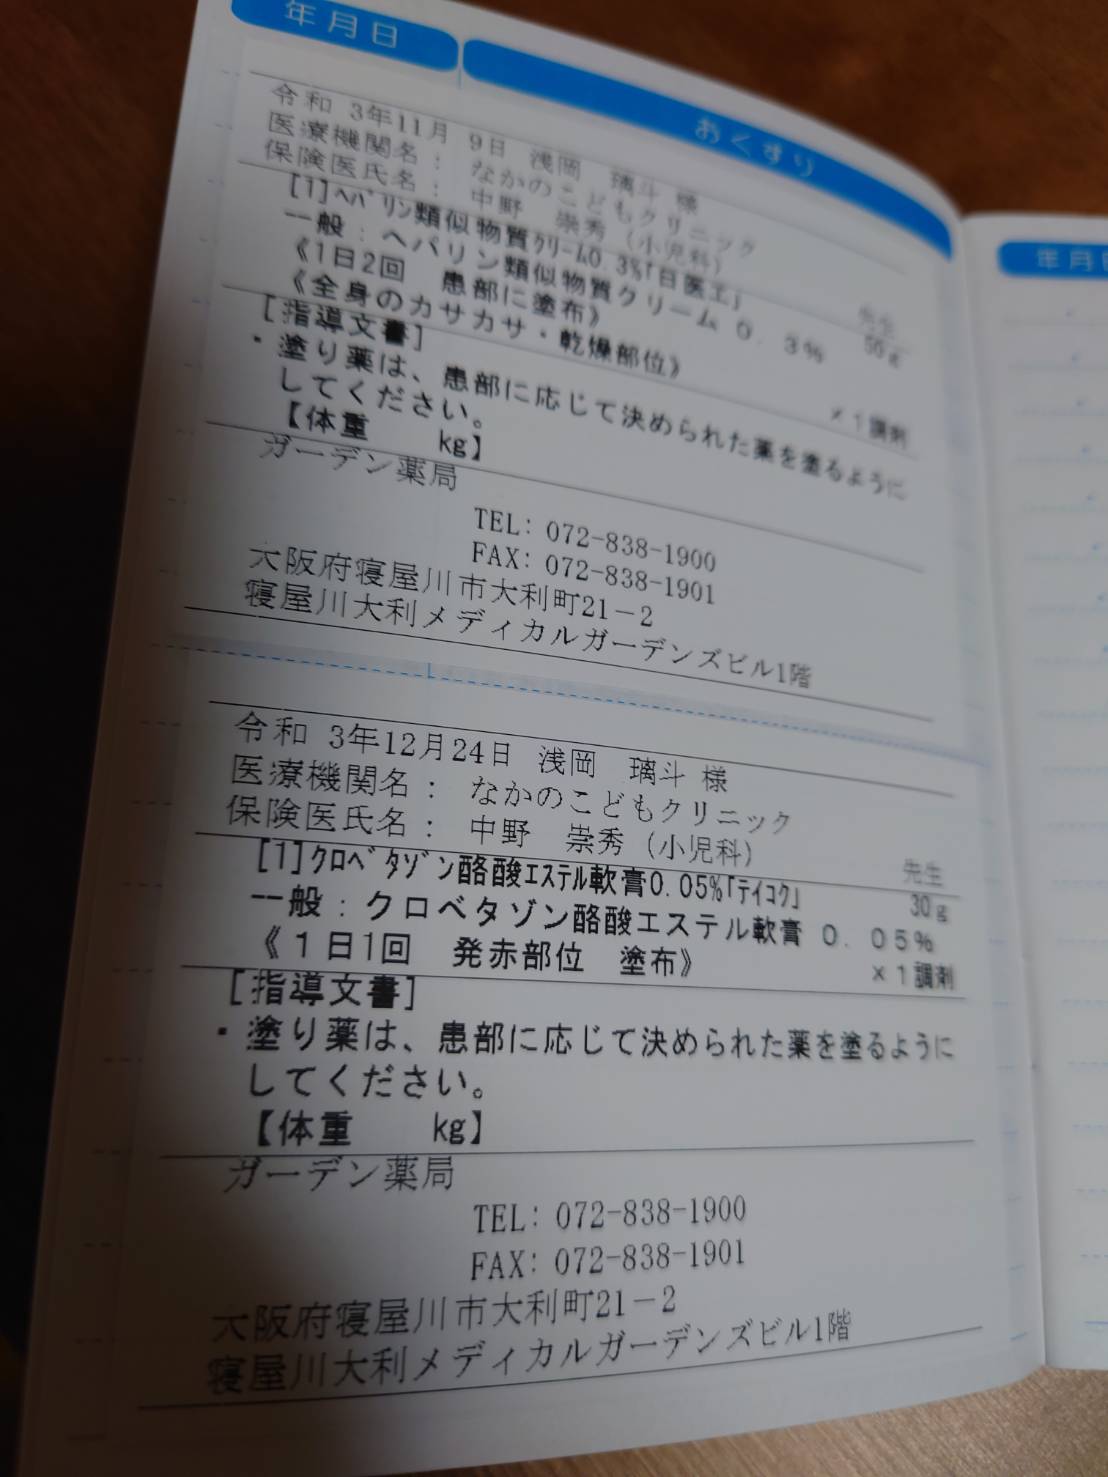 年月日
おくすり
令和 3年11月 9日 浅岡 璃斗 様
医療機関名： なかのこどもクリニック
保険医氏名： 中野 崇秀（小児科） 先生
[1]ﾍﾊﾟﾘﾝ類似物質ｸﾘｰﾑ0.3%｢日医工｣ 50g
一般：ヘパリン類似物質クリーム０．３％
《1日2回 患部に塗布》
《全身のカサカサ・乾燥部位》 ×１調剤
[指導文書]
・塗り薬は、患部に応じて決められた薬を塗るように
してください。
【体重 kg】
ガーデン薬局
TEL: 072-838-1900
FAX: 072-838-1901
大阪府寝屋川市大利町21－2
寝屋川大利メディカルガーデンズビル1階
令和 3年12月24日 浅岡 璃斗 様
医療機関名： なかのこどもクリニック
保険医氏名： 中野 崇秀（小児科） 先生
[1]ｸﾛﾍﾞﾀｿﾞﾝ酪酸ｴｽﾃﾙ軟膏0.05%｢ﾃｲｺｸ｣ 30g
一般：クロベタゾン酪酸エステル軟膏０．０５％
《１日1回 発赤部位 塗布》 ×１調剤
[指導文書]
・塗り薬は、患部に応じて決められた薬を塗るように
してください。
【体重 kg】
ガーデン薬局
TEL: 072-838-1900
FAX: 072-838-1901
大阪府寝屋川市大利町21－2
寝屋川大利メディカルガーデンズビル1階
年月日